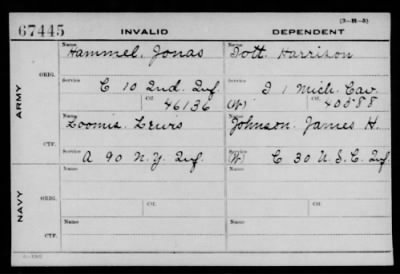 (3-H-5)
67445 INVALID DEPENDENT
Name Name
Hammel, Jonas Tott Harrison
ORIG. Service Service
C 10 Ind. Inf I 1 Mich. Cav.
Ctf. 46136 (W) Ctf. 40588
ARMY
Name Name
Loomis Lewis Johnson James H.
CTF. Service Service
A 90 N.Y. Inf. (W) C 30 U.S.C. Inf.
Name Name
ORIG. Ctf. Ctf.
NAVY
Name Name
CTF.